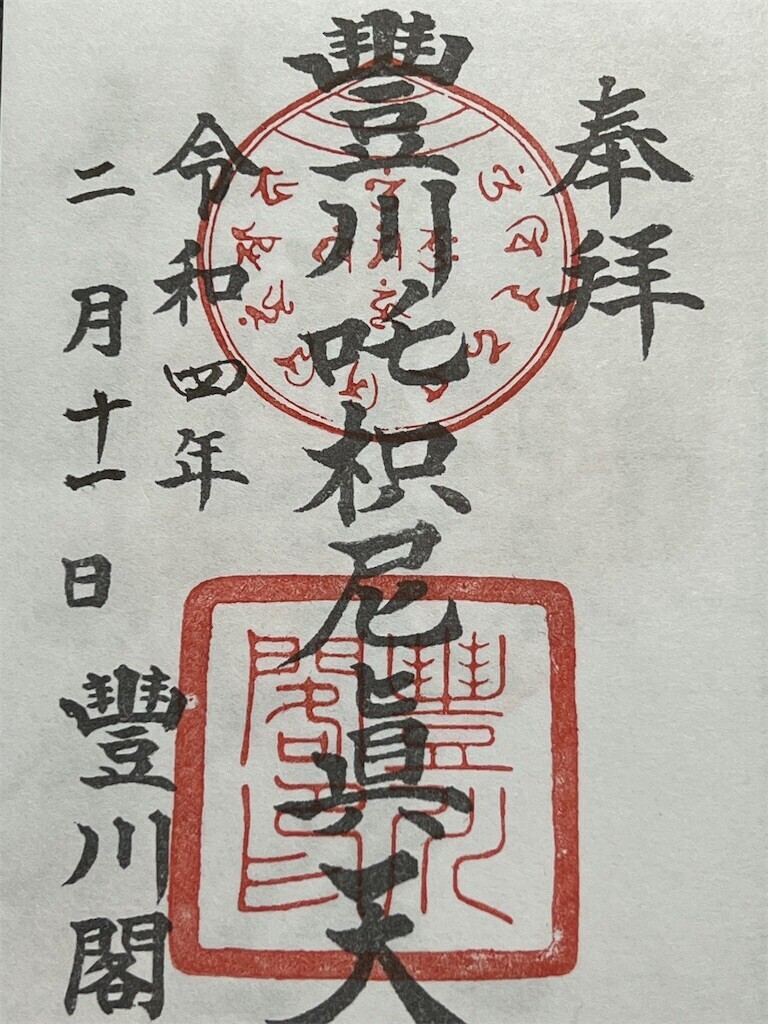 奉拜
豐川吒枳尼眞天
令和四年
二月十一日
豐川閣
豐川閣印